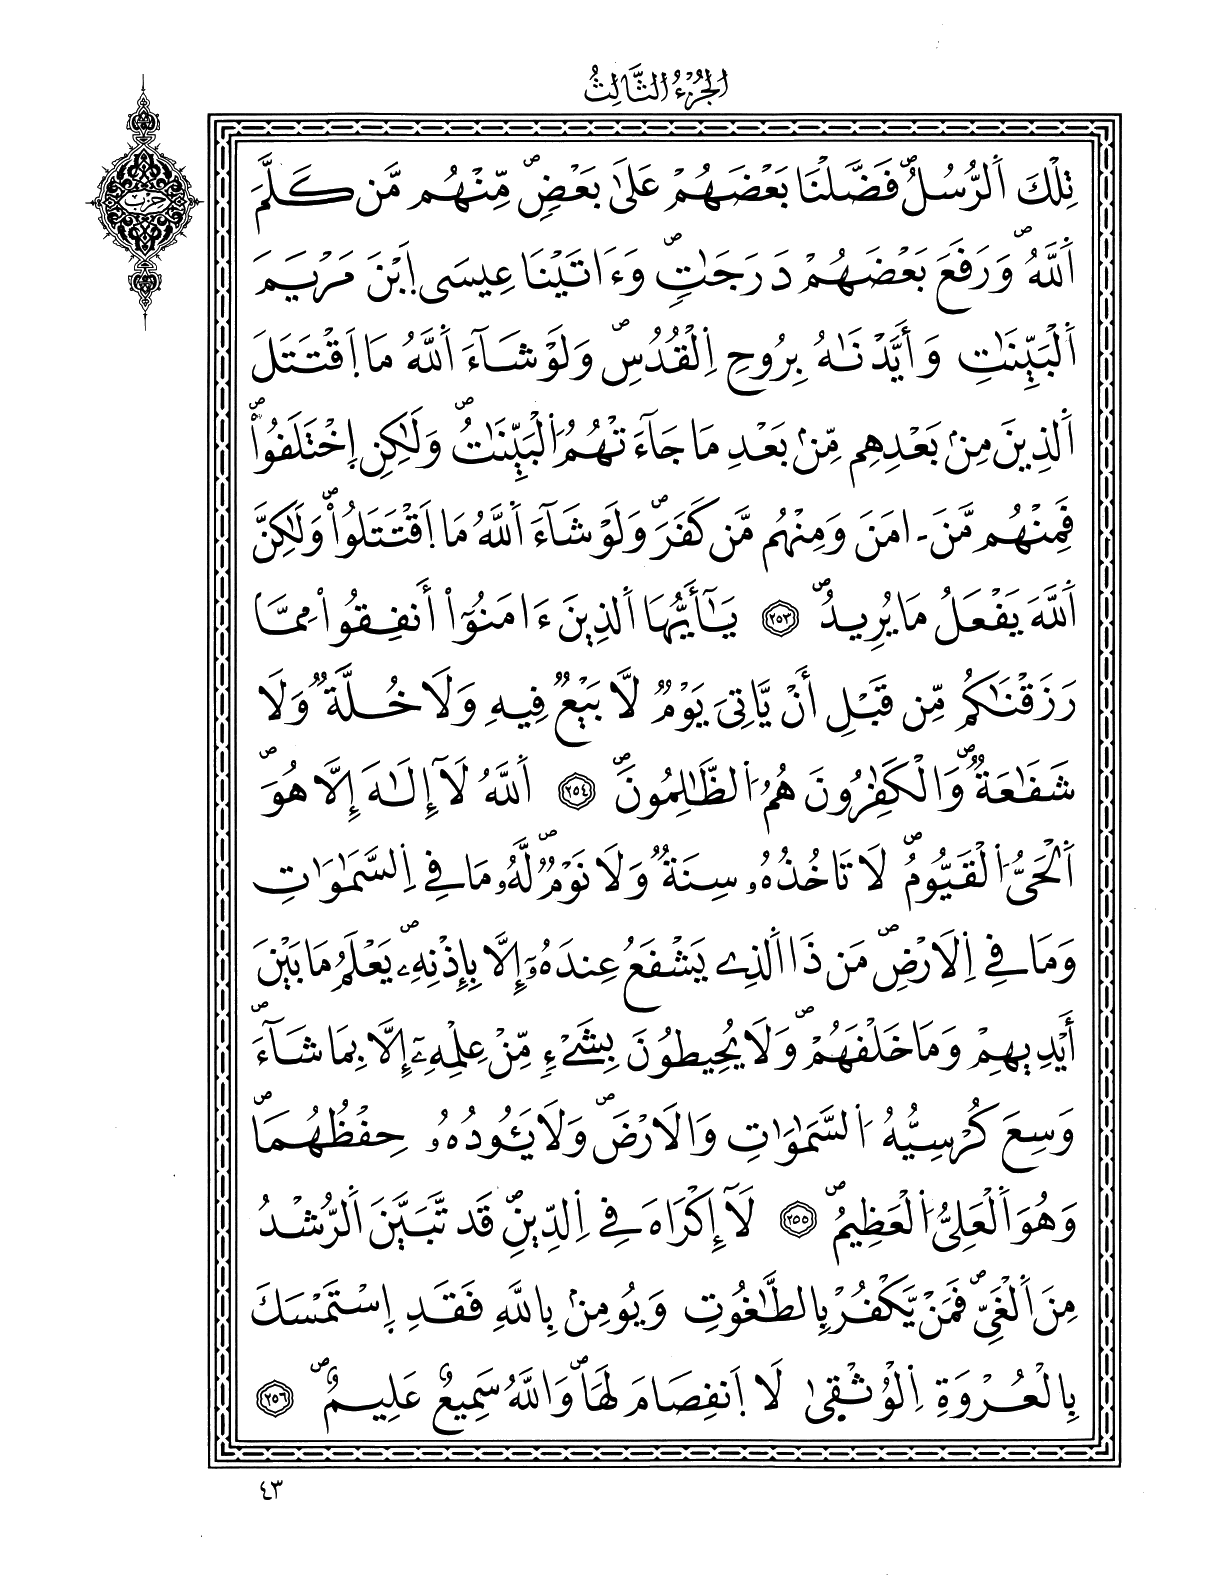 الجزء الثالث
حزب
تِلْكَ اَ۬لرُّسُلُ فَضَّلْنَا بَعْضَهُمْ عَلَىٰ بَعْضٖۖ مِّنْهُم مَّن كَلَّمَ
اَ۬للَّهُۖ وَرَفَعَ بَعْضَهُمْ دَرَجَٰتٖۖ وَءَاتَيْنَا عِيسَى اَ۪بْنَ مَرْيَمَ
اَ۬لْبَيِّنَٰتِ وَأَيَّدْنَٰهُ بِرُوحِ اِ۬لْقُدُسِۖ وَلَوْ شَآءَ اَ۬للَّهُ مَا اَ۪قْتَتَلَ
اَ۬لذِينَ مِنۢ بَعْدِهِم مِّنۢ بَعْدِ مَا جَآءَتْهُمُ اُ۬لْبَيِّنَٰتُۖ وَلَٰكِنِ اِ۪خْتَلَفُواْۖ
فَمِنْهُم مَّنَ ـ امَنَ وَمِنْهُم مَّن كَفَرَۖ وَلَوْ شَآءَ اَ۬للَّهُ مَا اَ۪قْتَتَلُواْۖ وَلَٰكِنَّ
اَ۬للَّهَ يَفْعَلُ مَا يُرِيدُۖ ٢٥٣ يَٰٓأَيُّهَا اَ۬لذِينَ ءَامَنُوٓاْ أَنفِقُواْ مِمَّا
رَزَقْنَٰكُم مِّن قَبْلِ أَنْ يَّاتِيَ يَوْمٞ لَّا بَيْعٞ فِيهِ وَلَا خُلَّةٞ وَلَا
شَفَٰعَةٞۖ وَالْكَٰفِرُونَ هُمُ اُ۬لظَّٰلِمُونَۖ ٢٥٤ اَ۬للَّهُ لَآ إِلَٰهَ إِلَّا هُوَۖ
اَ۬لْحَيُّ اُ۬لْقَيُّومُۖ لَا تَاخُذُهُۥ سِنَةٞ وَلَا نَوْمٞۖ لَّهُۥ مَا فِے اِ۬لسَّمَٰوَٰتِ
وَمَا فِے اِ۬لَارْضِۖ مَن ذَا اَ۬لذِے يَشْفَعُ عِندَهُۥٓ إِلَّا بِإِذْنِهِۦۖ يَعْلَمُ مَا بَيْنَ
أَيْدِيهِمْ وَمَا خَلْفَهُمْۖ وَلَا يُحِيطُونَ بِشَےْءٖ مِّنْ عِلْمِهِۦٓ إِلَّا بِمَا شَآءَۖ
وَسِعَ كُرْسِيُّهُ اُ۬لسَّمَٰوَٰتِ وَالَارْضَۖ وَلَا يَـُٔودُهُۥ حِفْظُهُمَاۖ
وَهُوَ اَ۬لْعَلِيُّ اُ۬لْعَظِيمُۖ ٢٥٥ لَآ إِكْرَاهَ فِے اِ۬لدِّينِۖ قَد تَّبَيَّنَ اَ۬لرُّشْدُ
مِنَ اَ۬لْغَيِّۖ فَمَنْ يَّكْفُرْ بِالطَّٰغُوتِ وَيُومِنۢ بِاللَّهِ فَقَدِ اِ۪سْتَمْسَكَ
بِالْعُرْوَةِ اِ۬لْوُثْقَىٰ لَا اَ۪نفِصَامَ لَهَاۖ وَاللَّهُ سَمِيعٌ عَلِيمٌۖ ٢٥٦
٤٣